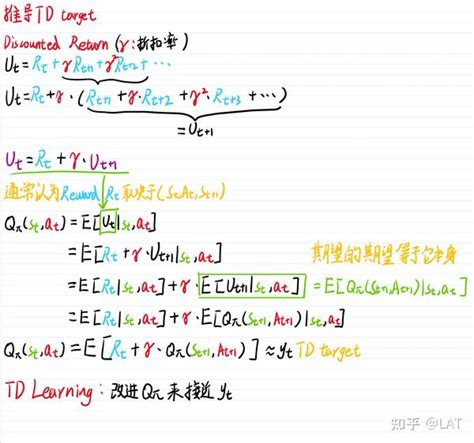 推导TD target
Discounted Return (γ:折扣率)
Ut = Rt + γRt+1 + γ²Rt+2 + ...
Ut = Rt + γ · (Rt+1 + γ · Rt+2 + γ² · Rt+3 + ...)
= Ut+1
Ut = Rt + γ · Ut+1
通常认为Reward Rt 取决于(St,At,St+1)
Qπ(st,at) = E[Ut|st,at]
= E[Rt + γ · Ut+1|st,at] 期望的期望等于它本身
= E[Rt|st,at] + γ · E[Ut+1|st,at] = E[Qπ(St+1,At+1)|st,at]
= E[Rt|st,at] + γ · E[Qπ(St+1,At+1)|st,at]
Qπ(st,at) = E[Rt + γ · Qπ(St+1,At+1)] ≈ yt TD target
TD Learning: 改进Qπ来接近yt
知乎 @LAT